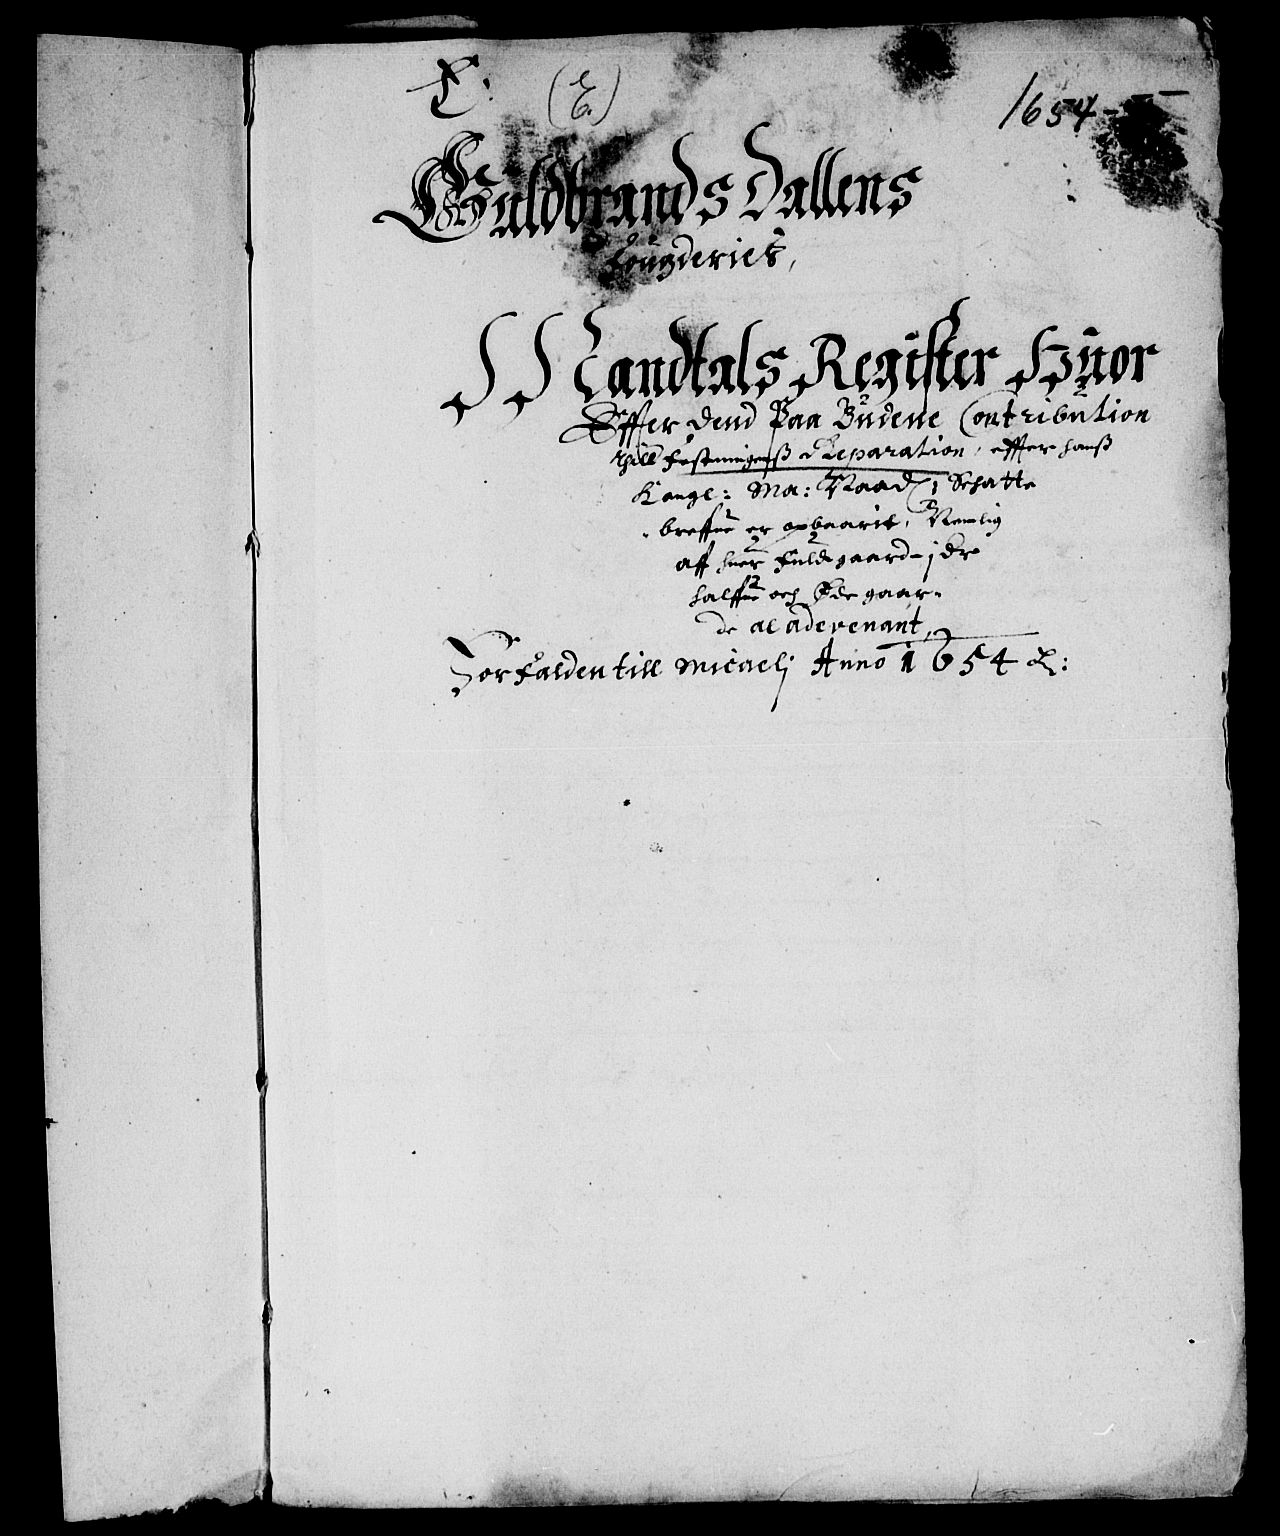 E: 1654
Guldbrands Dallens
Fougderies,
Mandtals Register Huor
Effter dend Paa Budene Contribution
thill Festningenß Reparation, effter hanß
Kongl: Ma: Naad: Schatte
breffue er opbaarit, Nemlig
aff huer fulde gaard j dr
halffue och Øde gaar-
de al adevenant,
Forfalden till Micaelj Anno 1654